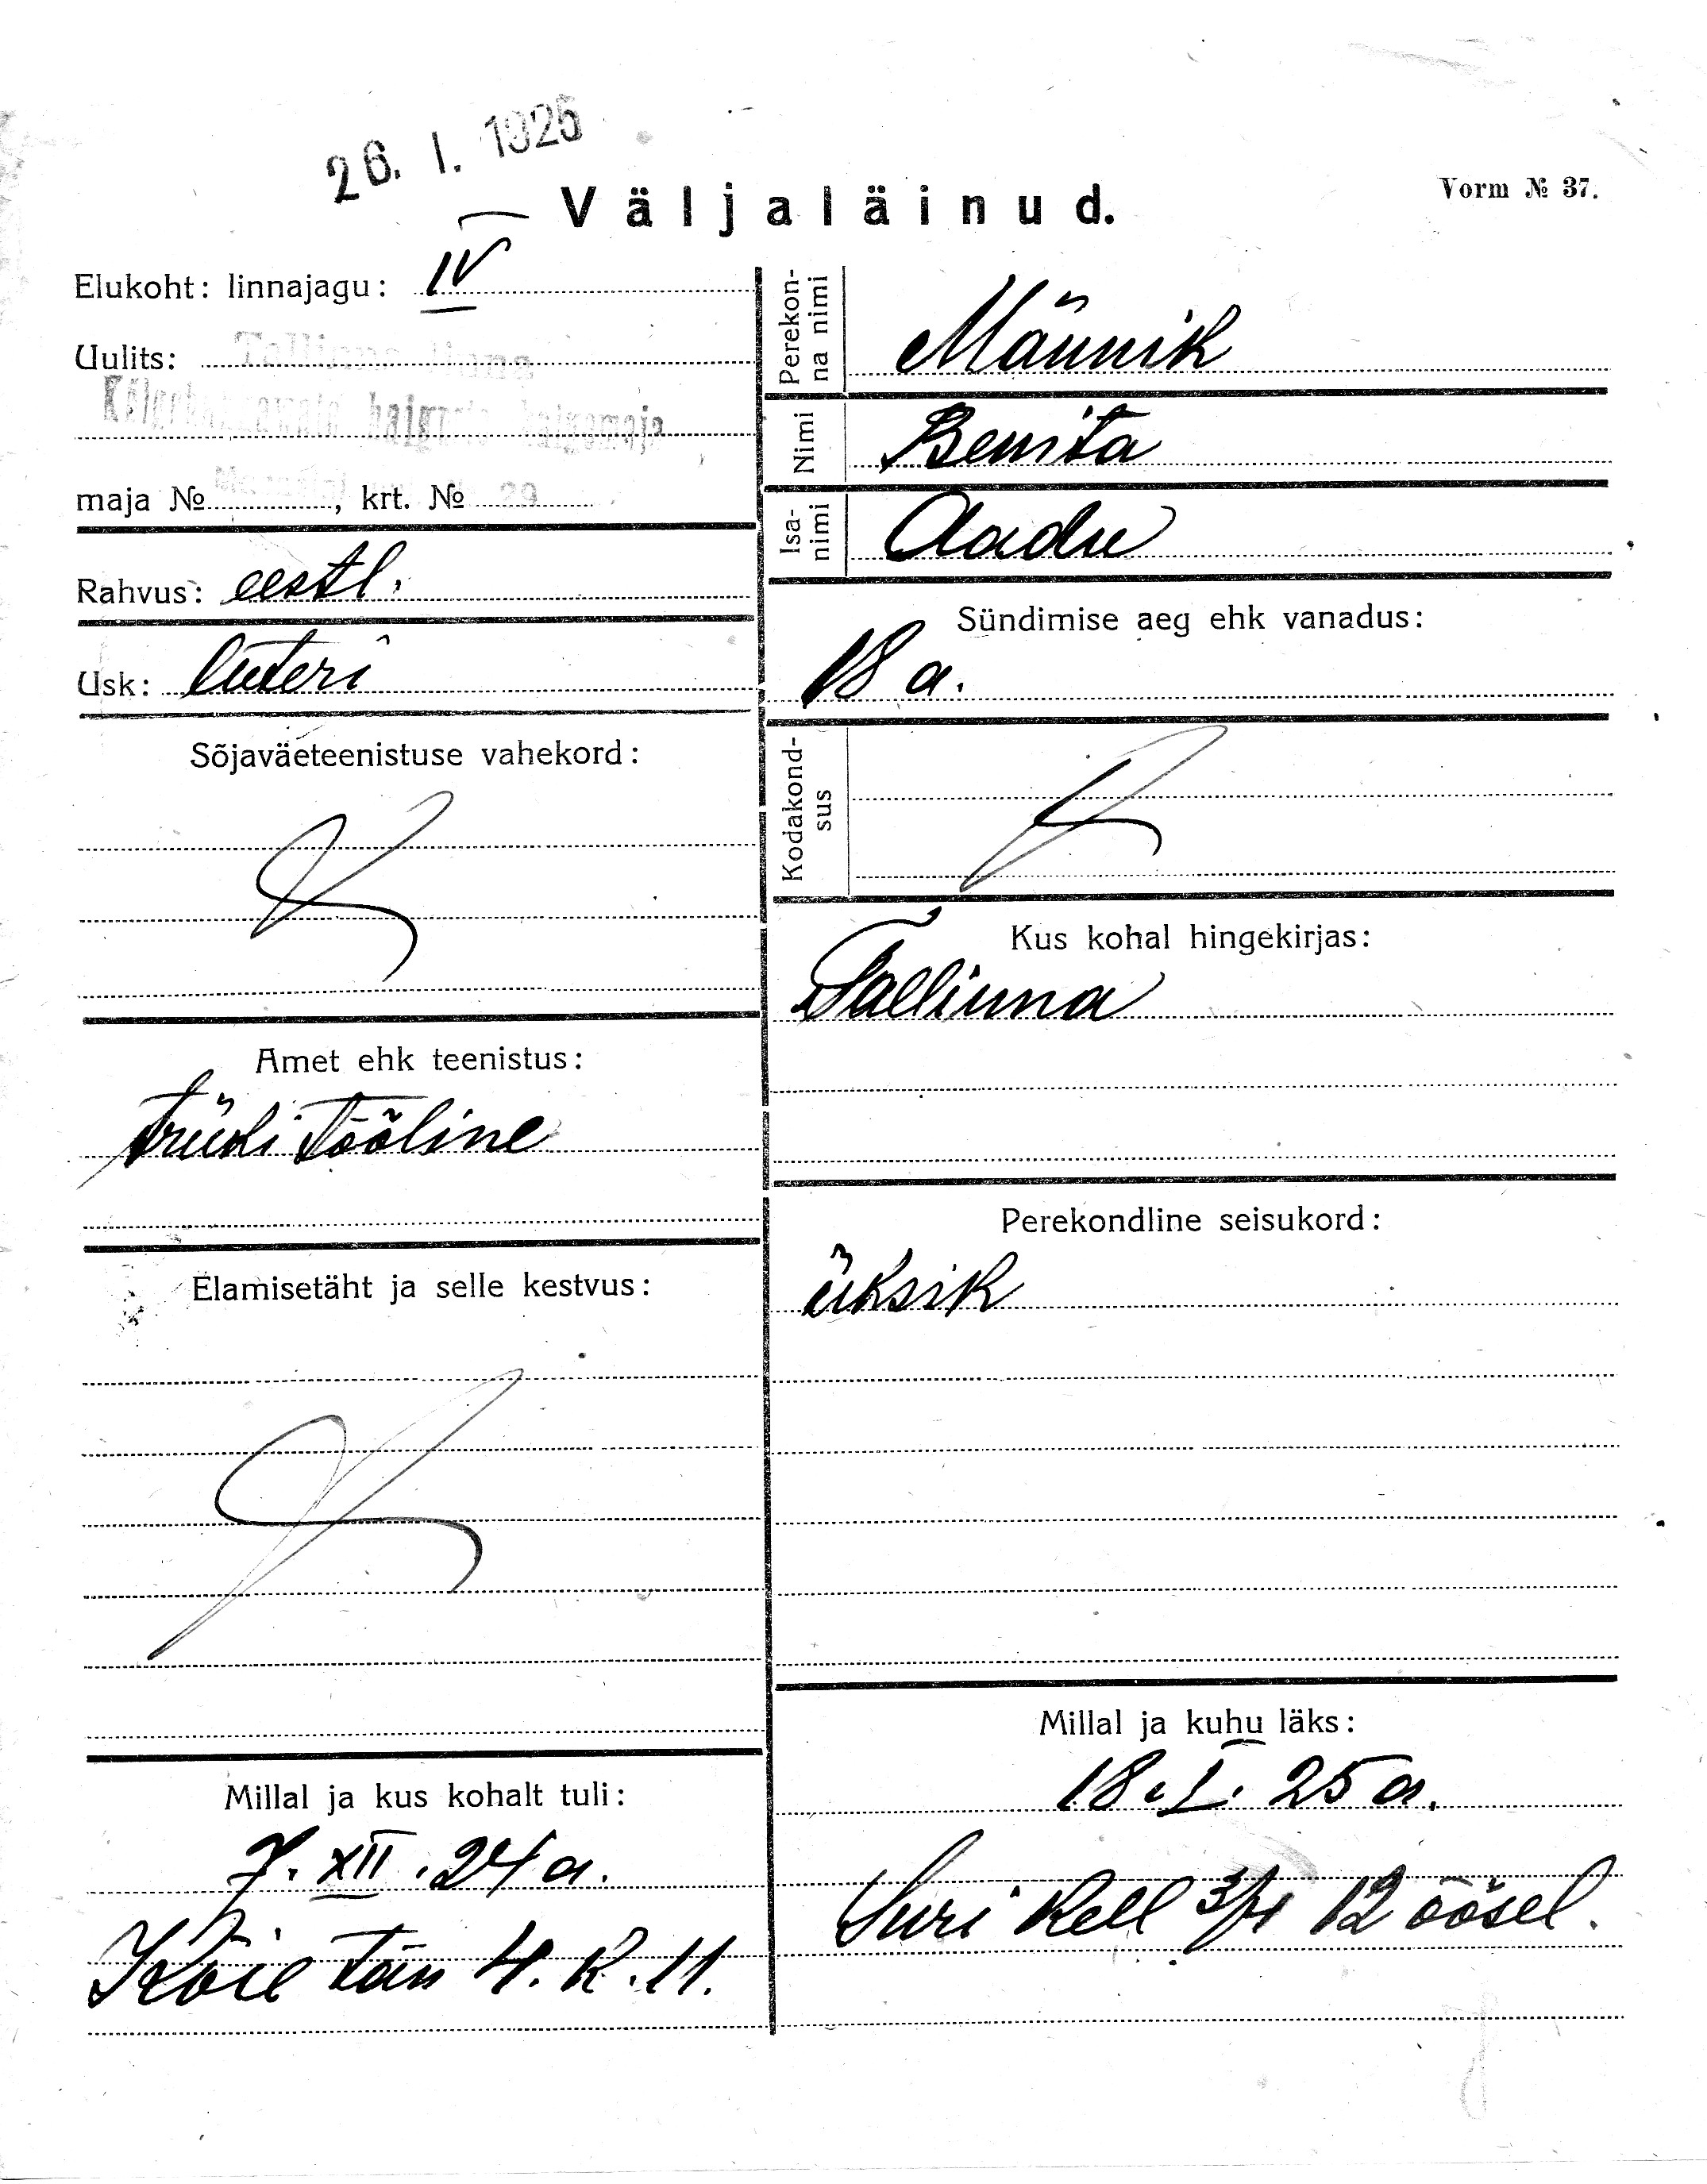 26. I. 1925
Väljaläinud.
Vorm № 37.
Elukoht: linnajagu: IV
Uulits: Tallinna linna
haigete haigemaja
maja № , krt. № 29
Rahvus: eestl.
Usk: luteri
Sõjaväeteenistuse vahekord:
Amet ehk teenistus:
trüki tööline
Elamisetäht ja selle kestvus:
Millal ja kus kohalt tuli:
7. XII. 24 a.
Köie tän 4. K. 11.
Perekon-
na nimi
Männik
Nimi
Benita
Isa-
nimi
Aadu
Sündimise aeg ehk vanadus:
18 a.
Kodakond-
sus
Kus kohal hingekirjas:
Tallinna
Perekondline seisukord:
üksik
Millal ja kuhu läks:
18. I. 25 a.
Suri kell 3/4 12 öösel.